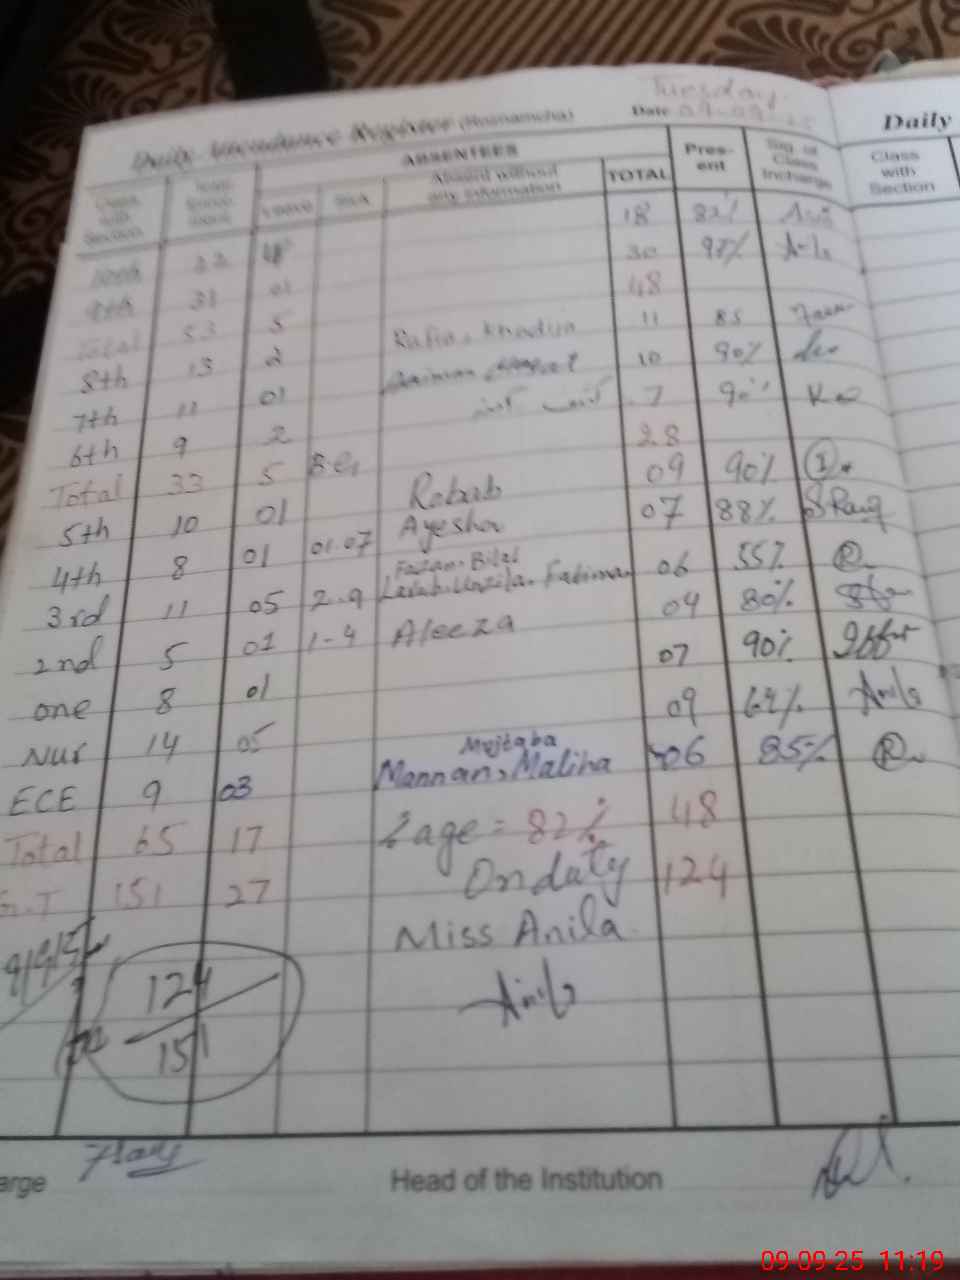 Tuesday
Daily Attendance Register (Roznamcha) Date 09-09-25
Class with Section ABSENTEES TOTAL Present Sig. of Class Incharge
Leave Sick Absent without any information
10th 22 18 82%
9th 31 01 30 Anila
Total 53 5 48
8th 13 2 Rafia, Khadija 11 85
7th 11 01 10 90%
6th 9 2 7 90%
Total 33 5 28
5th 10 01 Rabab 09 90%
4th 8 01 01.07 Ayesha 07 88%
Fazan. Bilal
3rd 11 05 2-9 Laiah. Unzila. Fatiman 06 55% R
2nd 5 01 1-4 Aleeza 04 80%
one 8 01 07 90%
Nur 14 05 09 64% Anila
Mujtaba
ECE 9 03 Mannan, Maliha 06 85% R
Total 65 17 %age = 82% 48
G.T 151 27 On duty 124
Miss Anila
9/9/25
124
Anila
151
Head of the Institution
Daily
Class with Section
09-09-25 11:19